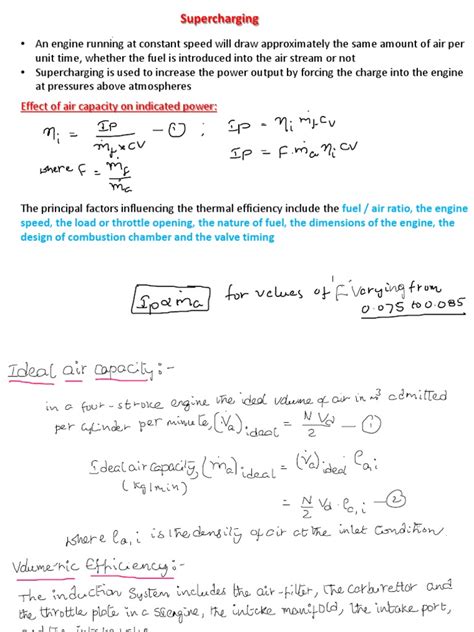 Supercharging
• An engine running at constant speed will draw approximately the same amount of air per
unit time, whether the fuel is introduced into the air stream or not
• Supercharging is used to increase the power output by forcing the charge into the engine
at pressures above atmospheres
Effect of air capacity on indicated power:
ηi = IP / (ṁf × CV) — ① ; IP = ηi ṁf CV
IP = F. ṁa ηi CV
where F = ṁf / ṁa
The principal factors influencing the thermal efficiency include the fuel / air ratio, the engine
speed, the load or throttle opening, the nature of fuel, the dimensions of the engine, the
design of combustion chamber and the valve timing
Ip α ṁa for values of 'F' varying from
0.075 to 0.085
Ideal air capacity:-
in a four-stroke engine the ideal volume of air in m³ admitted
per cylinder per minute, (V̇a)ideal = N Vd / 2 — ①
Ideal air capacity, (ṁa)ideal = (V̇a)ideal ρa,i
(kg/min)
= N/2 Vd . ρa,i — ②
where ρa,i is the density of air at the inlet condition.
Volumetric Efficiency:-
The induction system includes the air-filter, the carburettor and
the throttle plate in a SI engine, the intake manifold, the intake port,
and the intake valve